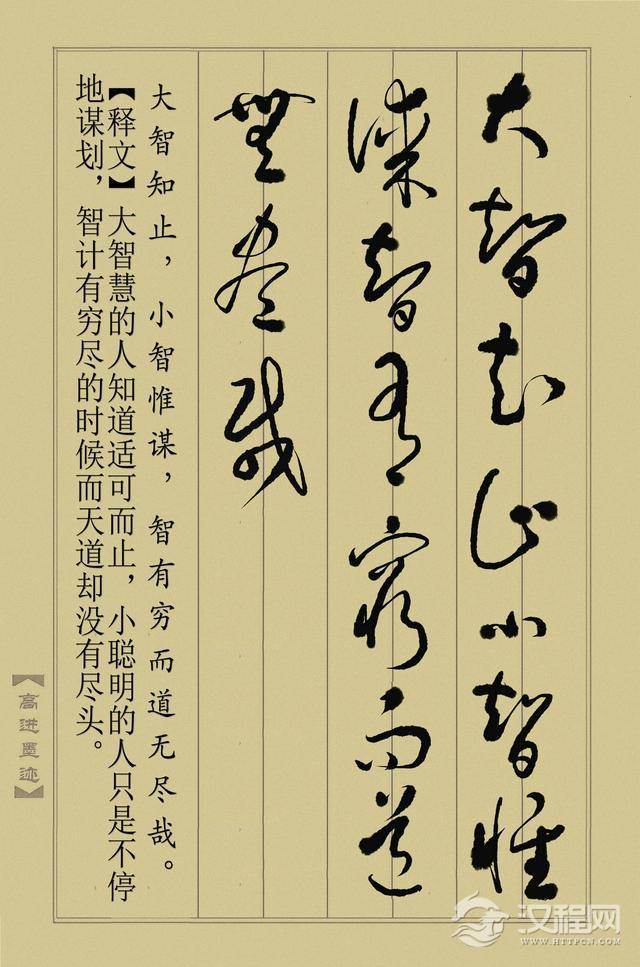 大智知止小智惟
谋智有穷而道
無尽哉
大智知止，小智惟谋，智有穷而道无尽哉。
【释文】大智慧的人知道适可而止，小聪明的人只是不停
地谋划，智计有穷尽的时候而天道却没有尽头。
【高进墨迹】
汉程网
WWW.HTTPCN.COM